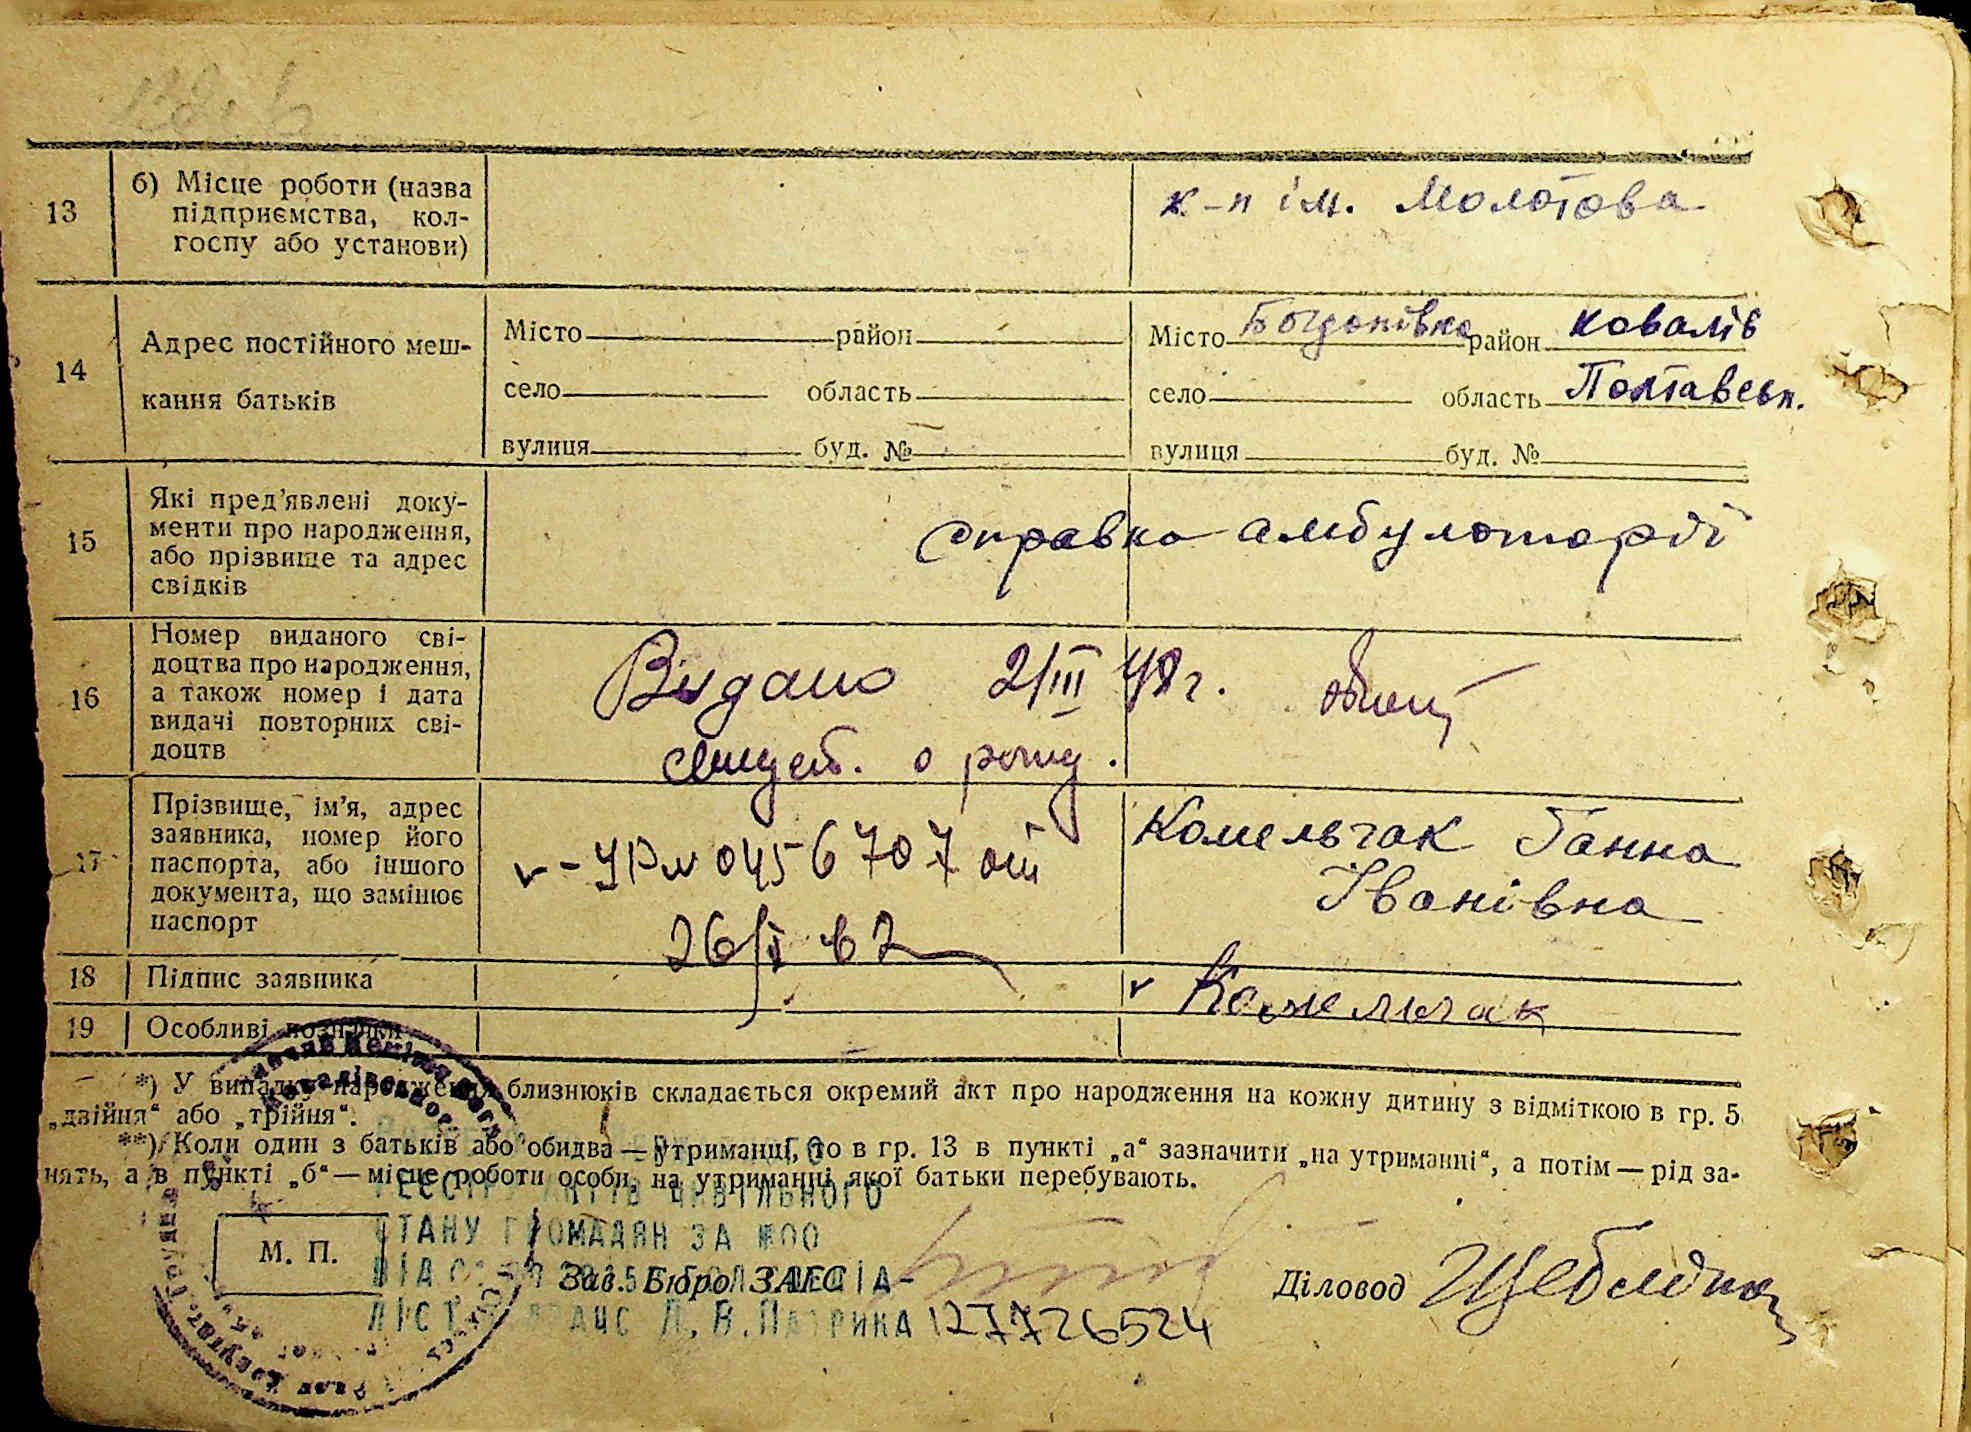 13
б) Місце роботи (назва
підприємства, кол-
госпу або установи)
к-п ім. Молотова
14
Адрес постійного меш-
кання батьків
Місто район
село область
вулиця буд. №
Місто Богданівка район Ковалів
село область Полтавськ.
вулиця буд. №
15
Які пред'явлені доку-
менти про народження,
або прізвище та адрес
свідків
справка амбулоторії
16
Номер виданого сві-
доцтва про народження,
а також номер і дата
видачі повторних сві-
доцтв
Видано 2/III 48 г.
о рожд.
17
Прізвище, ім'я, адрес
заявника, номер його
паспорта, або іншого
документа, що замінює
паспорт
0456707
Комельчак Ганна
Іванівна
18
Підпис заявника
Комельчак
19
Особливі позначки
*) У випадку народження близнюків складається окремий акт про народження на кожну дитину з відміткою в гр. 5
„двійня“ або „трійня“.
**) Коли один з батьків або обидва — утриманці, то в гр. 13 в пункті „а“ зазначити „на утриманні“, а потім — рід за-
нять, а в пункті „б“ — місце роботи особи, на утриманні якої батьки перебувають.
ЦИВІЛЬНОГО
СТАНУ ГРОМАДЯН ЗА №00
М. П.
Зав. Бюро ЗАГС
Діловод
277726524